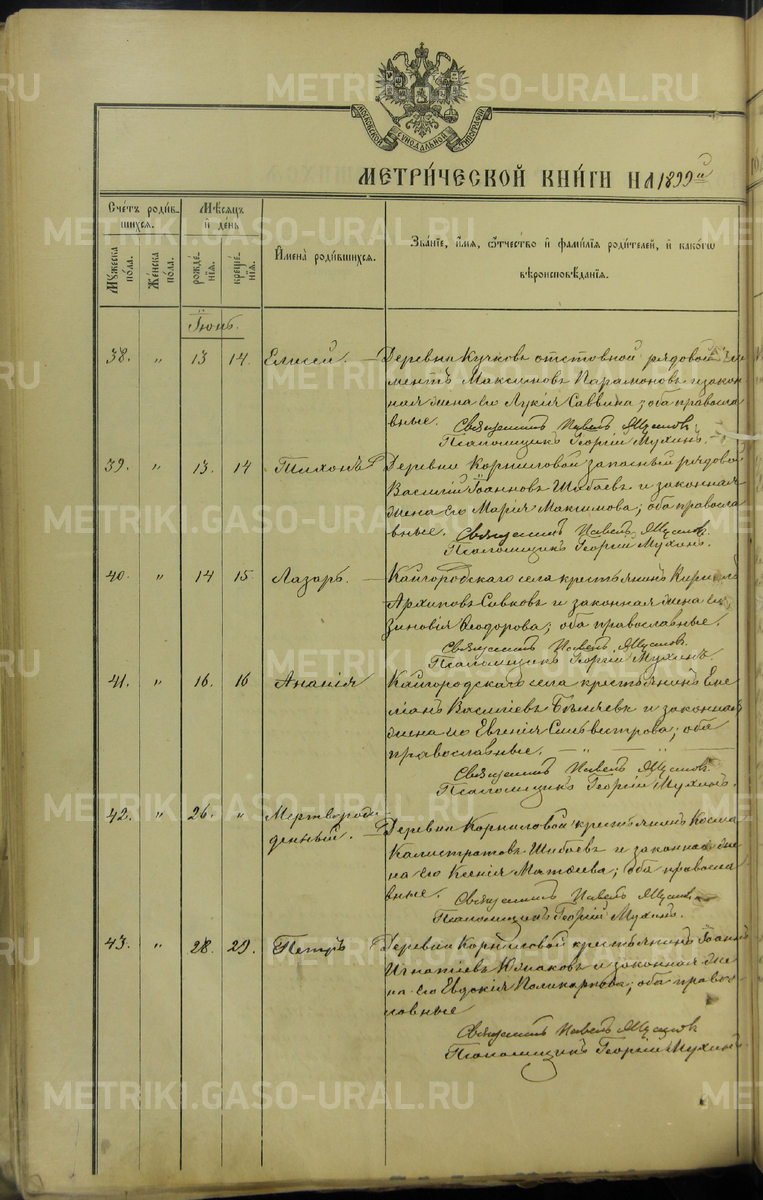 METRIKI.GASO-URAL.RU
МОСКОВСКОЙ СѴНОДАЛЬНОЙ ТИПОГРАФІИ
МЕТРИ́ЧЕСКОЙ КНИ́ГИ НА 1899й
Сче́тъ роди́в-
шихся.
Мꙋ́жеска по́ла.
Же́нска по́ла.
Мѣ́сяцъ
и҆ де́нь
рожде́-
нїѧ.
креще́-
нїѧ.
И҆мена̀ роди́вшихся.
Зва́нїе, и҆́мѧ, ѻ҆́тчество и҆ фами́лїѧ роди́телей, и҆ како́гѡ
вѣроисповѣ́данїѧ.
Іюнь.
38. " 13 14. Елисей. Деревни Кучковъ отставной рядовой Кле-
ментъ Максимовъ Парамоновъ и закон-
ная жена его Лукія Саввина; оба правосла-
вные. Священникъ Павелъ
Псаломщикъ Георгій Мухинъ.
39. " 13. 14 Тихонъ Деревни Корниловой запасный рядовой
Василій Іоанновъ Шибаевъ и законная
жена его Марія Максимова; оба правосла-
вные. Священникъ Павелъ
Псаломщикъ Георгій Мухинъ.
40. " 14 15. Лазарь. Кайгородскаго села крестьянинъ Кириллъ
Архиповъ Сивковъ и законная жена его
Зиновія Ѳеодорова; оба православные.
Священникъ Павелъ
Псаломщикъ Георгій Мухинъ.
41. " 16. 16 Ананія Кайгородскаго села крестьянинъ Еме-
ліанъ Василіевъ Бѣляевъ и законная
жена его Евгенія Сильвестрова; оба
православные. — " — " —
Священникъ Павелъ
Псаломщикъ Георгій Мухинъ.
42. " 26. " Мертворож-
денный. Деревни Корниловой крестьянинъ Косма
Калистратовъ Шибаевъ и законная же-
на его Ксенія Матѳеева; оба правосла-
вные. Священникъ Павелъ
Псаломщикъ Георгій Мухинъ.
43. " 28. 29. Петръ Деревни Корниловой крестьянинъ Іоаннъ
Игнатіевъ и законная же-
на его Евдокія Поликарпова; оба правос-
лавные
Священникъ Павелъ
Псаломщикъ Георгій Мухинъ